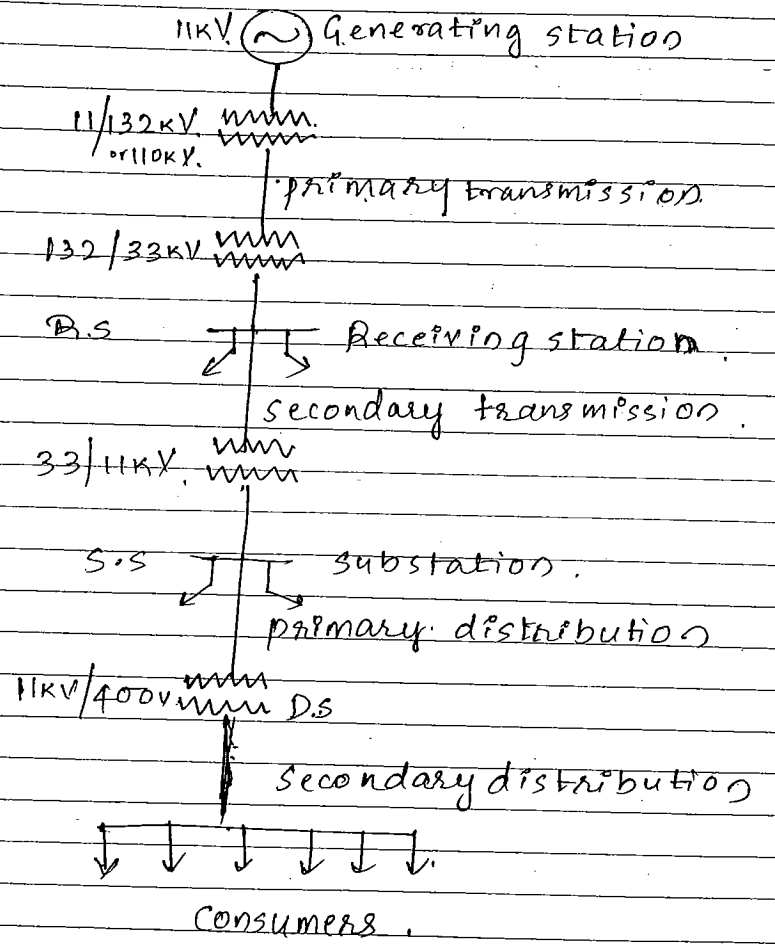 11KV. Generating station
11/132KV.
or 110KV.
primary transmission.
132/33KV
R.S Receiving station.
secondary transmission.
33/11KV.
S.S substation.
primary. distribution
11KV/400V D.S
secondary distribution
consumers.